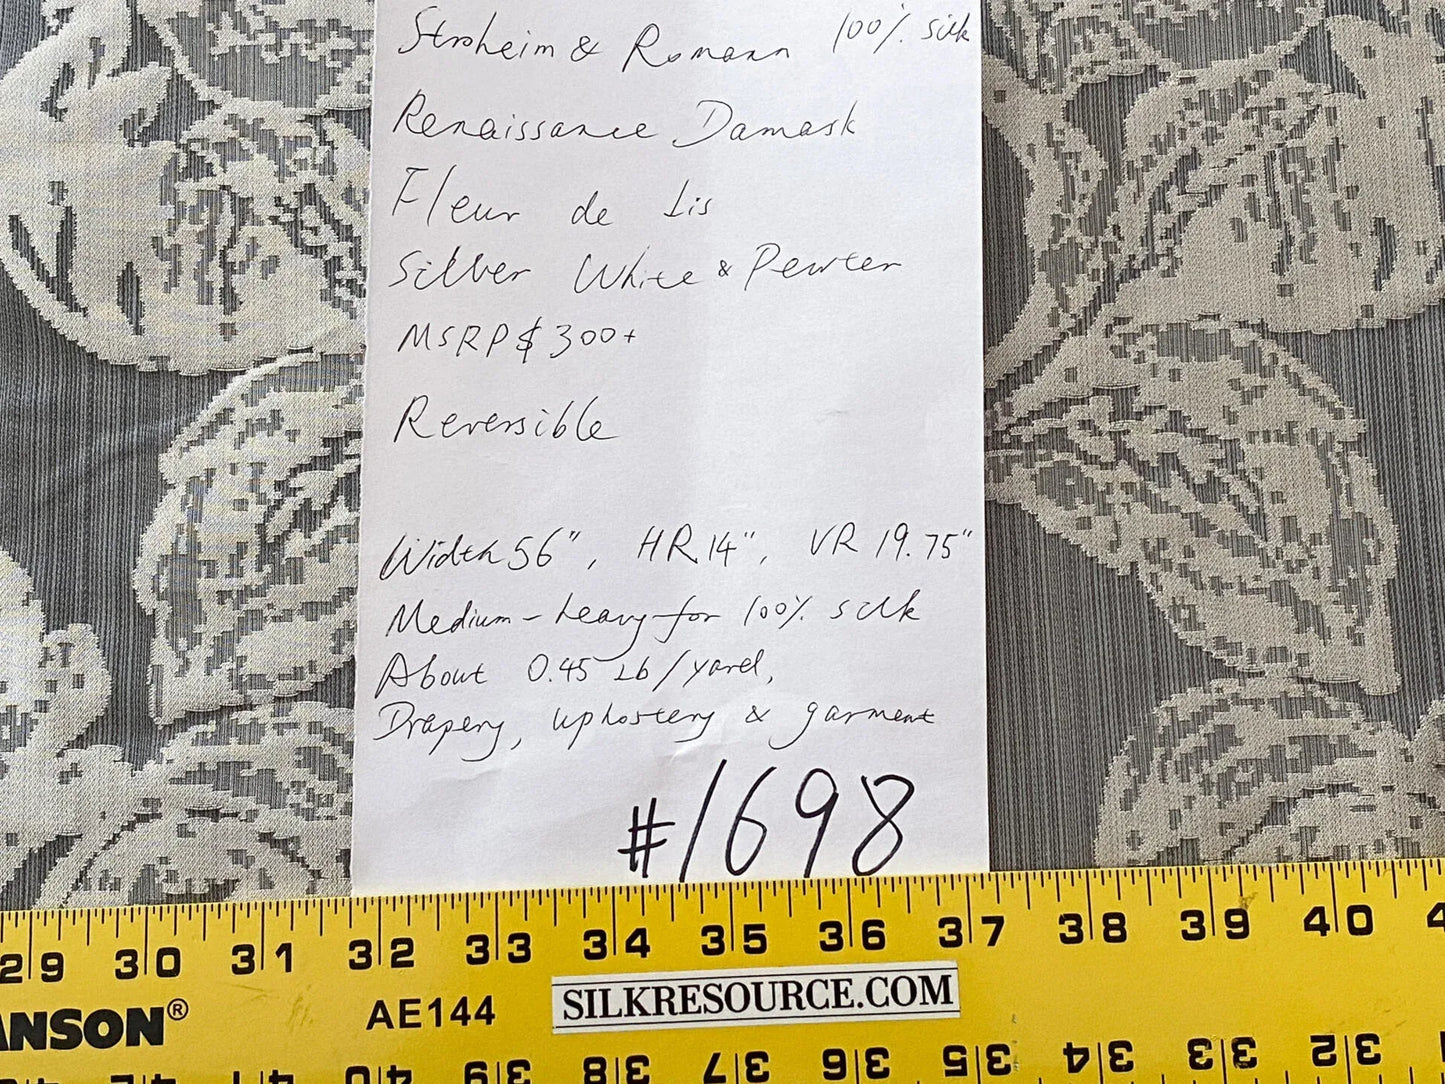 Stroheim & Romann 100% silk
Renaissance Damask
Fleur de Lis
Silver White & Pewter
MSRP $300+
Reversible
Width 56", HR 14", VR 19.75"
Medium-heavy for 100% silk
About 0.45 Lb/yard,
Drapery, uphostery & garment
#1698
29 30 31 32 33 34 35 36 37 38 39 40 4
ANSON® AE144 SILKRESOURCE.COM
42 41 40 39 38 37 36 35 34 33 32